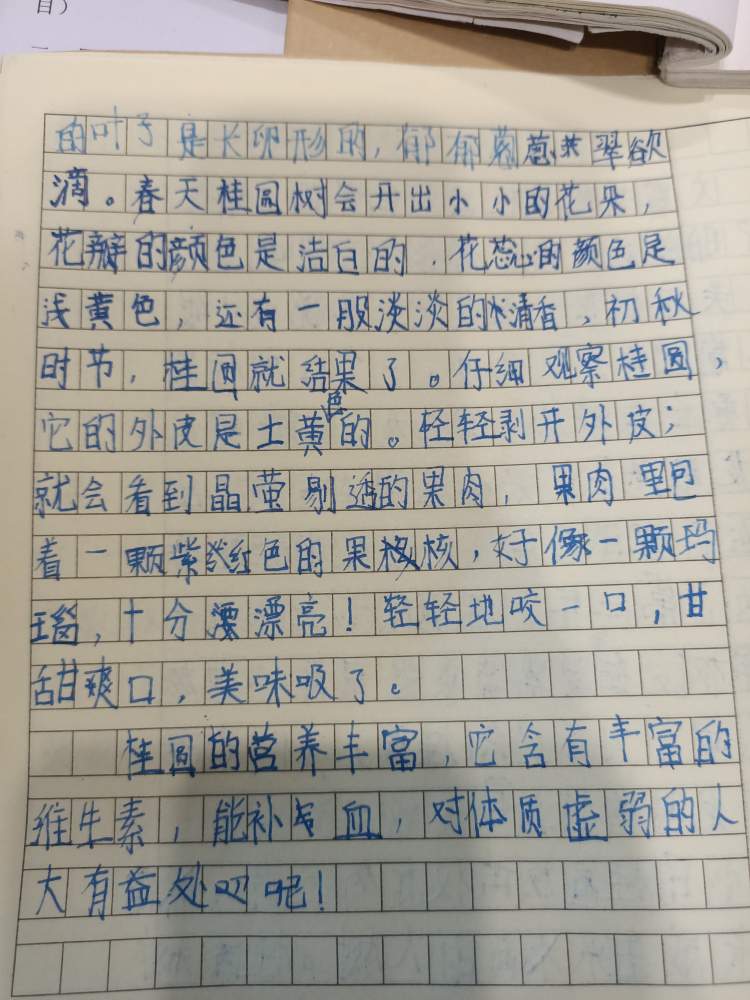 目）
的叶子是长卵形的，郁郁葱葱，翠欲
滴。春天桂圆树会开出小小的花朵，
花瓣的颜色是洁白的，花蕊的颜色是
浅黄色，还有一股淡淡的清香，初秋
时节，桂圆就结果了。仔细观察桂圆，
它的外皮是土黄色的。轻轻剥开外皮；
就会看到晶莹剔透的果肉，果肉里包
着一颗紫红色的果核，好像一颗玛
瑙，十分漂亮！轻轻地咬一口，甘
甜爽口，美味吸了。
桂圆的营养丰富，它含有丰富的
维生素，能补气血，对体质虚弱的人
大有益处呢！